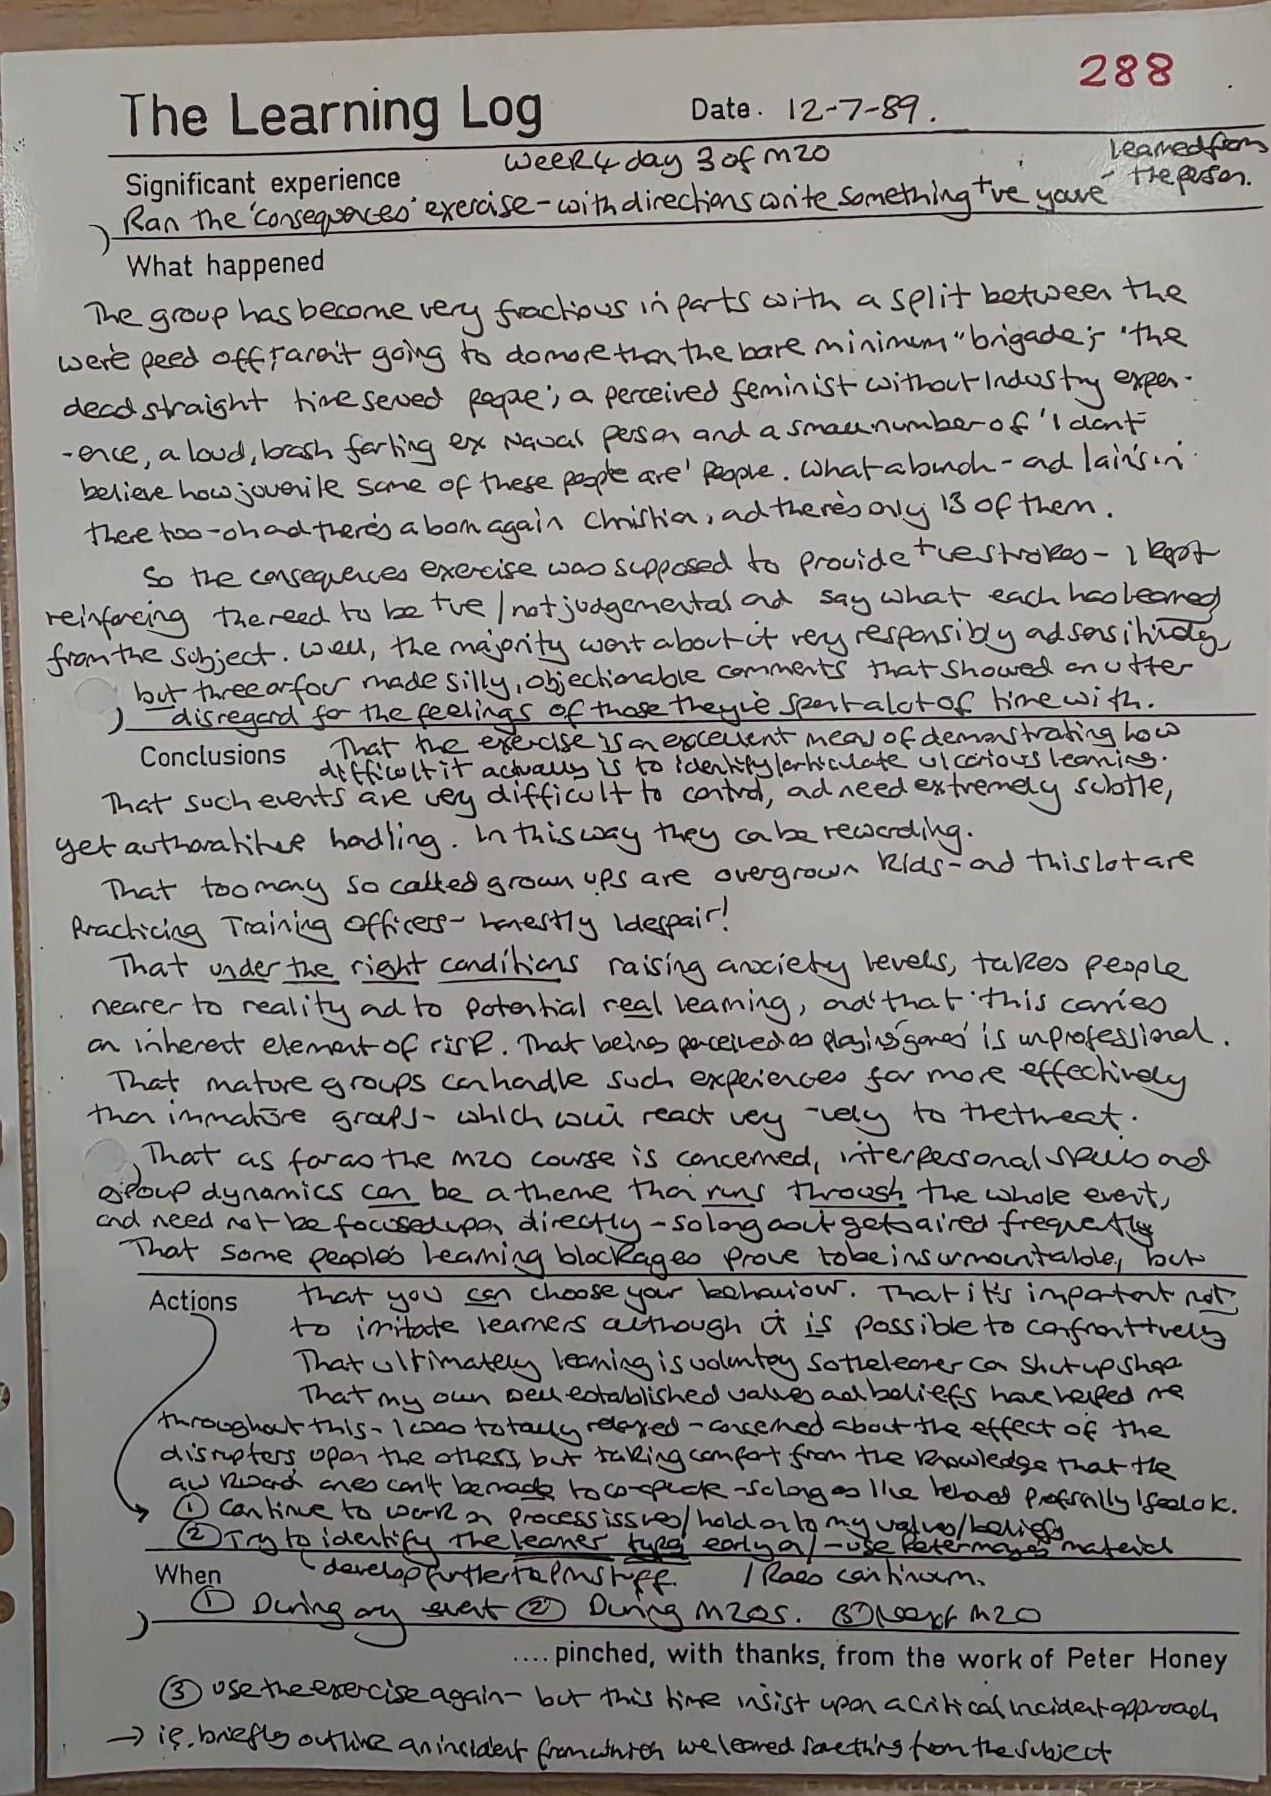 288
The Learning Log Date. 12-7-89.
week 4 day 3 of M20
Significant experience
learned from
Ran the 'consequences' exercise - with directions write something +ve you've the person.
What happened
The group has become very fractious in parts with a split between the
we're peed off, aren't going to do more than the bare minimum" brigade; 'the
dead straight time served people'; a perceived feminist without Industry exper-
-ence, a loud, brash farting ex Naval person and a small number of 'I don't
believe how jouvenile some of these people are' people. What a bunch - ad Iain's in
there too - oh ad there's a born again Christian, ad there's only 13 of them.
So the consequences exercise was supposed to provide +ve strokes - I kept
reinforcing the need to be +ve / not judgemental ad say what each has learned
from the subject. Well, the majority went about it very responsibly ad sensitively,
but three or four made silly, objectionable comments that showed an utter
disregard for the feelings of those they've spent a lot of time with.
Conclusions That the exercise is an excellent means of demonstrating how
difficult it actually is to identify/articulate vicarious learning.
That such events are very difficult to control, ad need extremely subtle,
yet authoratitive handling. In this way they can be rewarding.
That too many so called grown ups are overgrown kids - ad this lot are
Practicing Training Officers - honestly I despair!
That under the right conditions raising anxiety levels, takes people
nearer to reality ad to potential real learning, ad that this carries
an inherent element of risk. That being perceived as playing 'games' is unprofessional.
That mature groups can handle such experiences far more effectively
than immature groups - which will react very -vely to the threat.
That as far as the M20 course is concerned, interpersonal skills ad
group dynamics can be a theme that runs through the whole event,
and need not be focused upon directly - so long as it gets aired frequently
That some people's learning blockages prove to be insurmountable, but
Actions that you can choose your behaviour. That it's important not
to irritate learners although it is possible to confront +vely
That ultimately learning is voluntary so the learner can shut up shop
That my own well established values ad beliefs have helped me
throughout this - I was totally relaxed - concerned about the effect of the
disrupters upon the others, but taking comfort from the knowledge that the
awkward ones can't be made to co-operate - so long as I've behaved profsnally I feel ok.
① Continue to work on process issues / hold on to my values/beliefs
② Try to identify the learner type early on - use Peter material
When develop further stuff. / Raes continuum.
① During any event ② During M20s. ③ Next M20
.... pinched, with thanks, from the work of Peter Honey
③ use the exercise again - but this time insist upon a critical incident approach
→ ie. briefly outline an incident from which we learned something from the subject